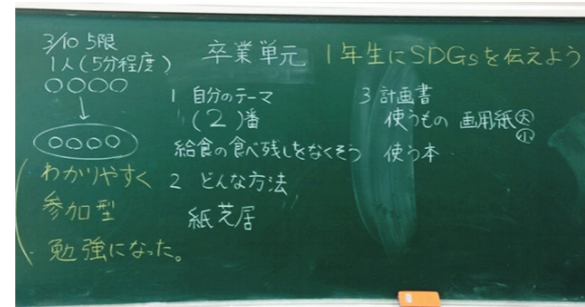 3/10 5限
1人(5分程度)
○○○○
↓
○○○○
わかりやすく
参加型
勉強になった。
卒業単元 1年生にSDGsを伝えよう
1 自分のテーマ
(2)番
給食の食べ残しをなくそう
2 どんな方法
紙芝居
3 計画書
使うもの 画用紙 大
小
使う本